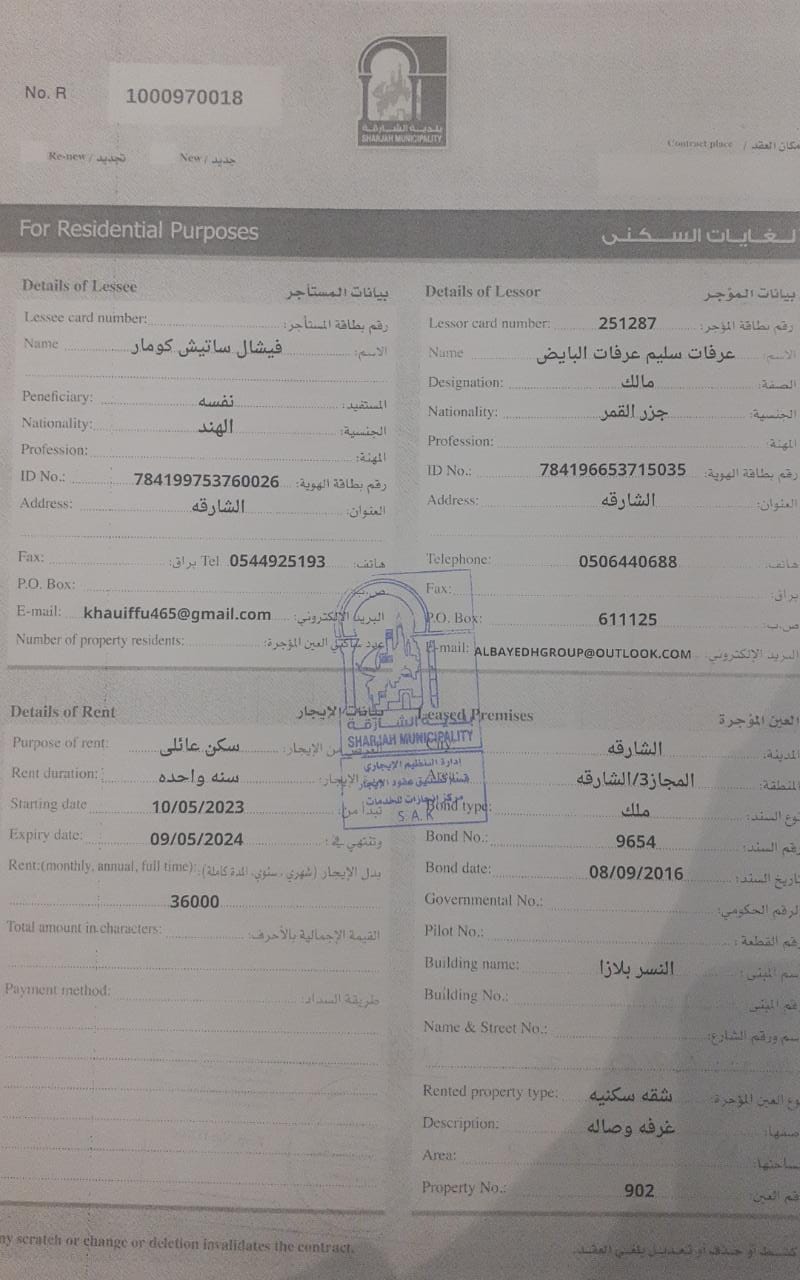 No. R 1000970018
بلدية الشارقة
SHARJAH MUNICIPALITY
Re-new / تجديد New / جديد
Contract place / مكان العقد
For Residential Purposes لغايات السكنى
Details of Lessee بيانات المستأجر
Lessee card number: رقم بطاقة المستأجر:
Name فيشال ساتيش كومار الاسم:
Peneficiary: نفسه المستفيد:
Nationality: الهند الجنسية:
Profession: المهنة:
ID No.: 784199753760026 رقم بطاقة الهوية:
Address: الشارقه العنوان:
Fax: براق: Tel 0544925193 هاتف:
P.O. Box: ص.ب:
E-mail: khauiffu465@gmail.com البريد الإلكتروني:
Number of property residents: عدد ساكني العين المؤجرة:
Details of Lessor بيانات المؤجر
Lessor card number: 251287 رقم بطاقة المؤجر:
Name عرفات سليم عرفات البايض الاسم:
Designation: مالك الصفة:
Nationality: جزر القمر الجنسية:
Profession: المهنة:
ID No.: 784196653715035 رقم بطاقة الهوية:
Address: الشارقه العنوان:
Telephone: 0506440688 هاتف:
Fax: براق:
P.O. Box: 611125 ص.ب:
E-mail: ALBAYEDHGROUP@OUTLOOK.COM البريد الإلكتروني:
بلدية الشارقة
SHARJAH MUNICIPALITY
إدارة التنظيم الإيجاري
قسم تصديق عقود الإيجار
S. A. K
Details of Rent بيانات الإيجار
Purpose of rent: سكن عائلى من الإيجار:
Rent duration: سنه واحده الإيجار:
Starting date 10/05/2023 تبدأ من:
Expiry date: 09/05/2024 وتنتهي في:
Rent:(monthly, annual, full time): بدل الإيجار (شهري، سنوي، المدة كاملة):
36000
Total amount in characters: القيمة الإجمالية بالأحرف:
Payment method: طريقة السداد:
Leased Premises العين المؤجرة
City: الشارقه المدينة:
المجاز3/الشارقه المنطقة:
Bond type: ملك نوع السند:
Bond No.: 9654 رقم السند:
Bond date: 08/09/2016 تاريخ السند:
Governmental No.: الرقم الحكومي:
Pilot No.: رقم القطعة:
Building name: النسر بلازا اسم المبنى:
Building No.: رقم المبنى:
Name & Street No.: اسم ورقم الشارع:
Rented property type: شقه سكنيه نوع العين المؤجرة:
Description: غرفه وصاله
Area: مساحتها:
Property No.: 902 رقم العين:
ny scratch or change or deletion invalidates the contract. كشط أو حذف أو تعديل يلغي العقد.